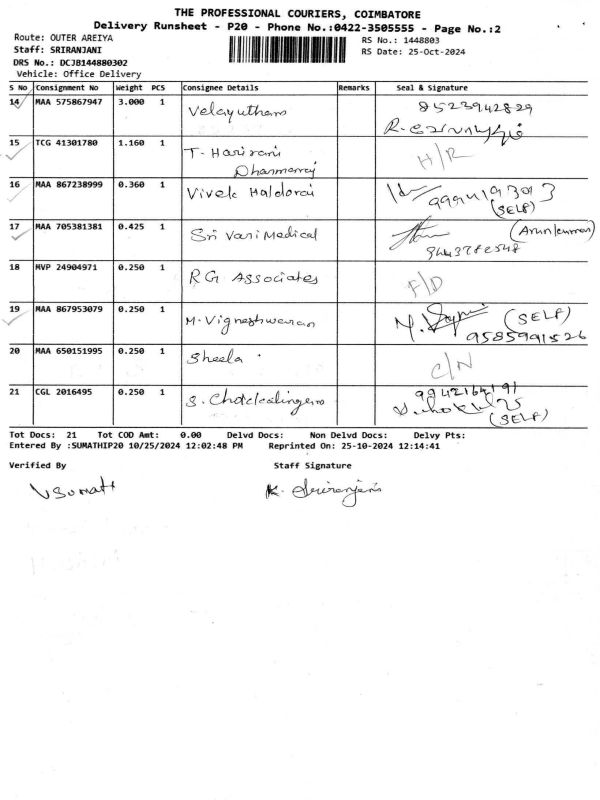 THE PROFESSIONAL COURIERS, COIMBATORE
Delivery Runsheet - P20 - Phone No.:0422-3505555 - Page No.:2
Route: OUTER AREIYA
RS No.: 1448803
Staff: SRIRANJANI
RS Date: 25-Oct-2024
DRS No.: DCJB144880302
Vehicle: Office Delivery
S No Consignment No Weight PCS Consignee Details Remarks Seal & Signature
14 MAA 575867947 3.000 1 Velayutham 8523942829
15 TCG 41301780 1.160 1 T. Harirani H/R
Dharmarraj
16 MAA 867238999 0.360 1 Vivek Haldorai
(SELF)
17 MAA 705381381 0.425 1 Sri Vari Medical (Arunkumar)
18 MVP 24904971 0.250 1 RG Associates F/D
19 MAA 867953079 0.250 1 M. Vigneshwaran (SELF)
9585991526
20 MAA 650151995 0.250 1 Sheela C/N
21 CGL 2016495 0.250 1 S. Chockalingam
(SELF)
Tot Docs: 21 Tot COD Amt: 0.00 Delvd Docs: Non Delvd Docs: Delvy Pts:
Entered By :SUMATHIP20 10/25/2024 12:02:48 PM Reprinted On: 25-10-2024 12:14:41
Verified By Staff Signature
V Sumathi K. Sriranjani